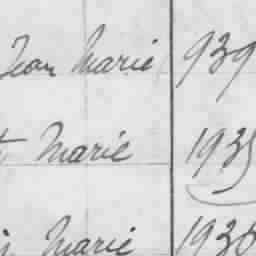 Jean Marie 939
Marie 1935
Marie 193